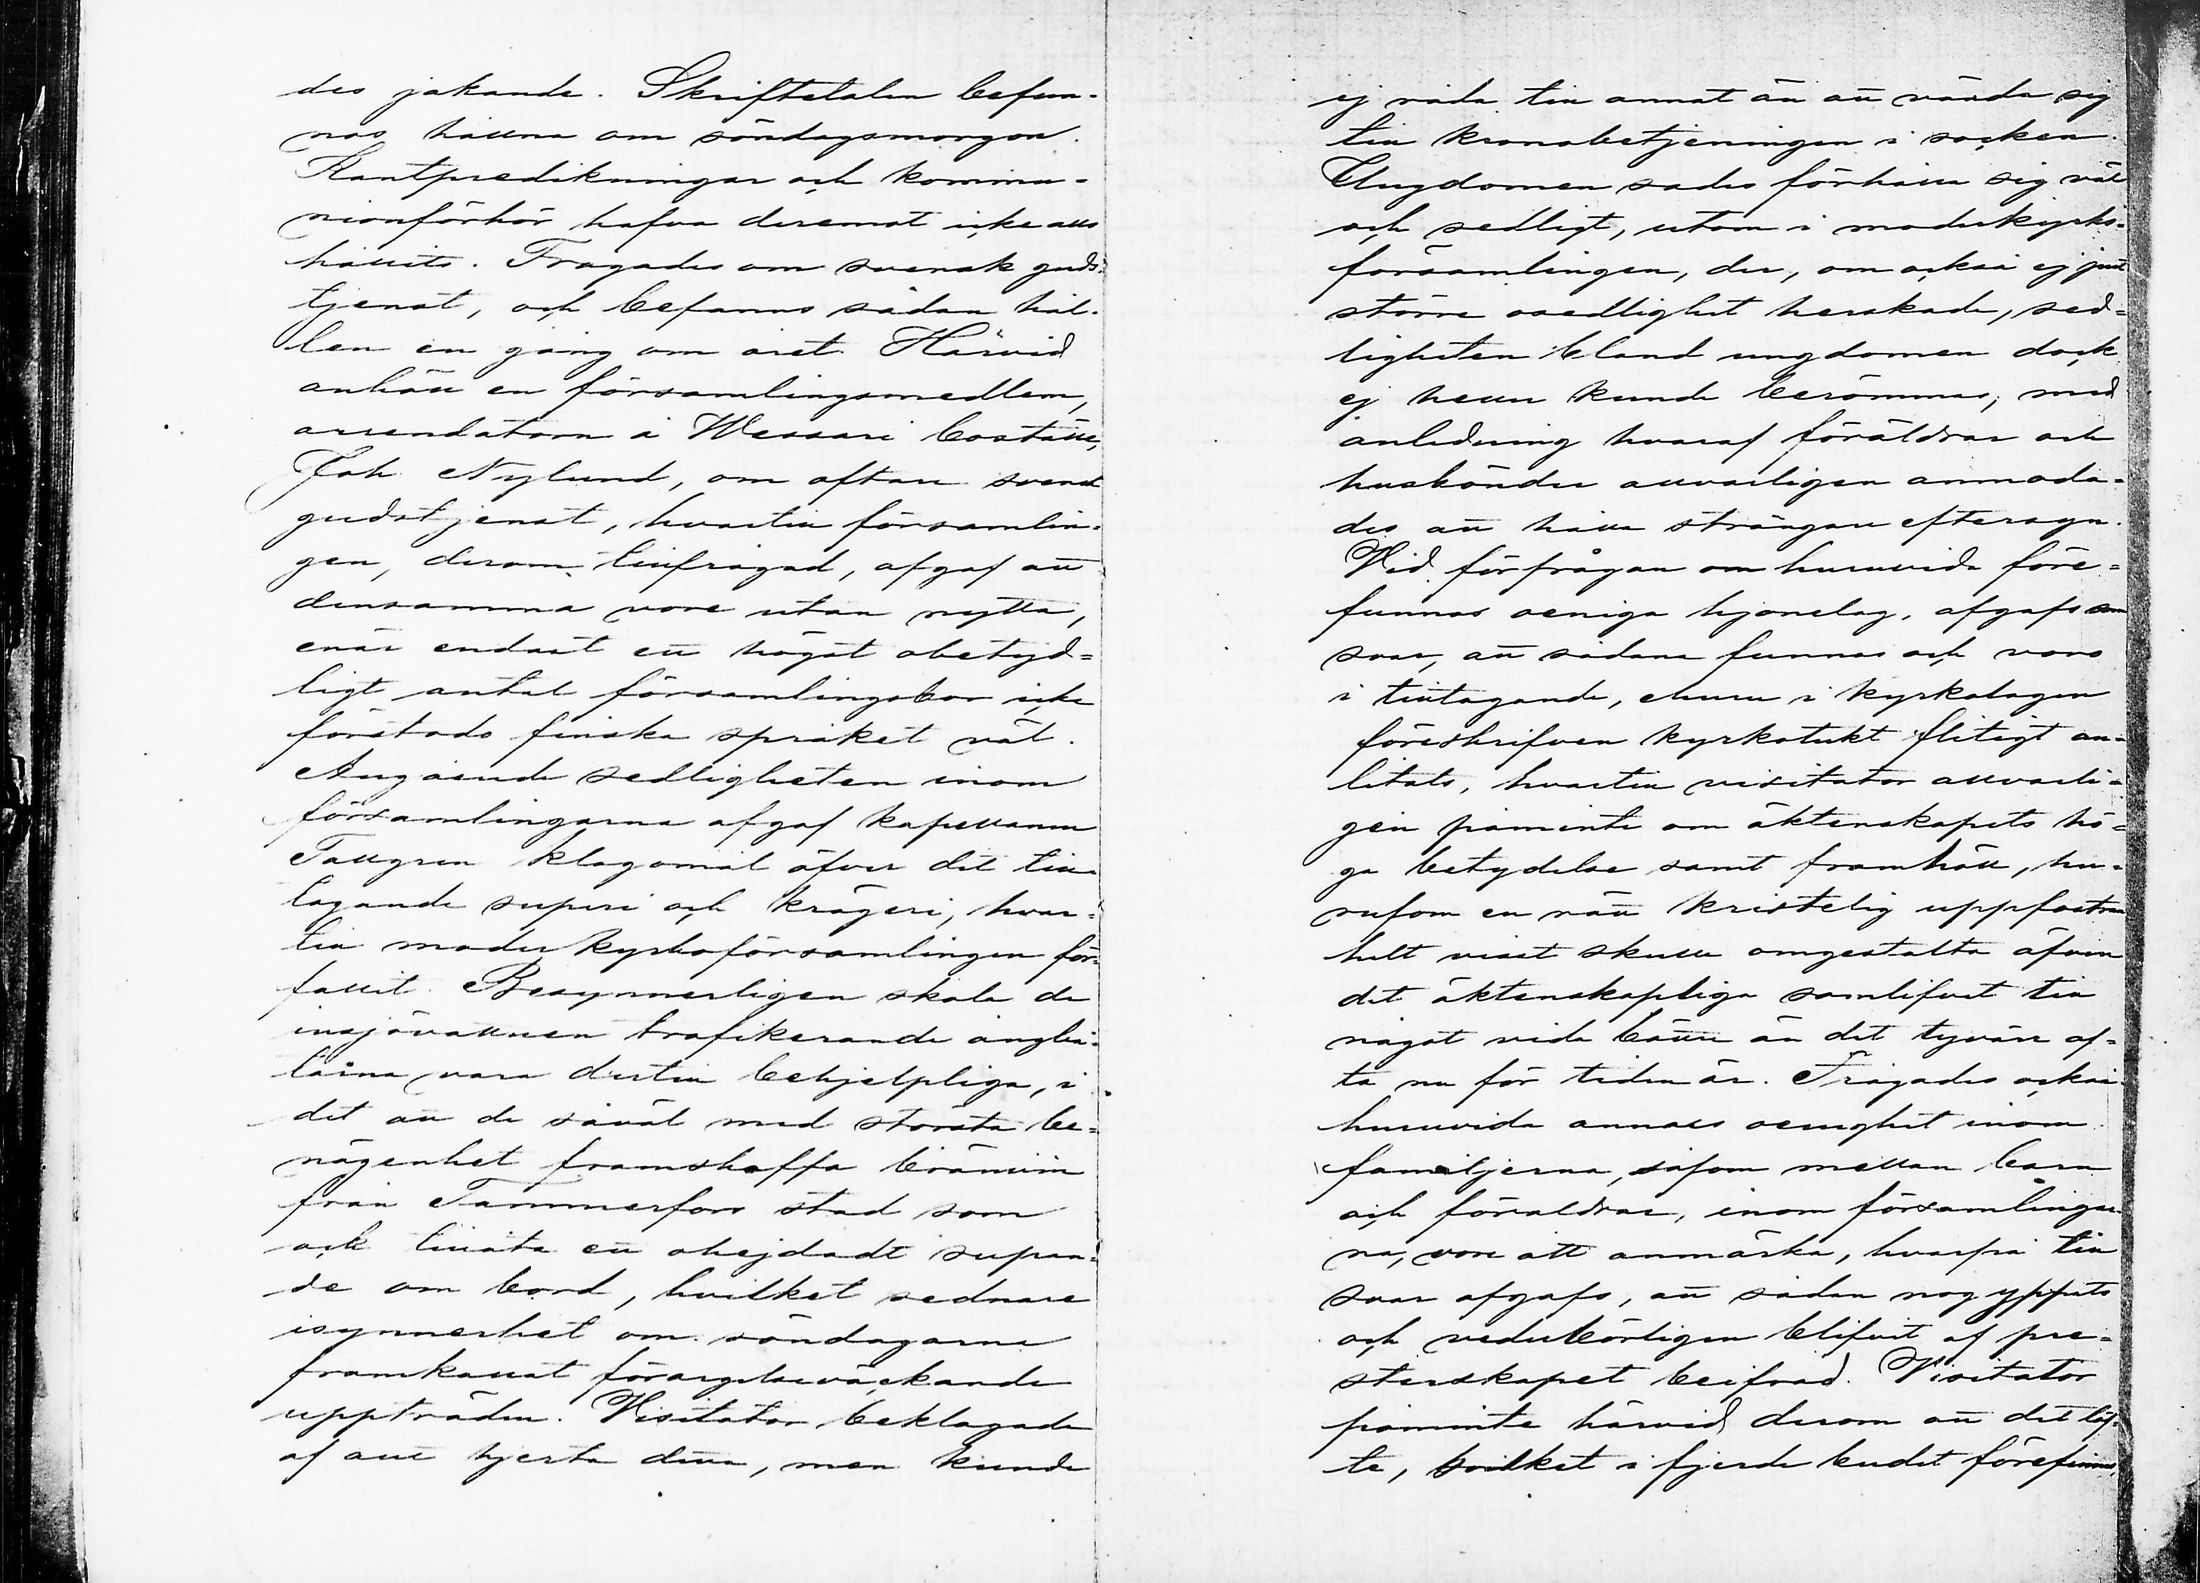 des jakande. Skriftetalen befun-
nos hållna om söndagsmorgon.
Kantpredikningar och kommu-
nionförhör hafva deremot icke alls
hållits. Frågades om svensk guds-
tjenst, och befanns sådan hål-
len en gång om året. Härvid
anhöll en församlingsmedlem,
arrendatorn å Wessari boställe,
Joh Nylund, om oftare svensk
gudstjenst, hvartill församlin-
gen, derom tillfrågad, afgaf att
densamma vore utan nytta,
enär endast ett högst obetyd=
ligt antal församlingsbor icke
förstods finska språket väl.
Angående sedligheten inom
församlingarna afgaf kapellanen
Tallgren klagomål öfver det till-
tagande superi och krögeri, hvar-
till moderkyrkoförsamlingen för-
fallit. Besynnerligen skola de
insjövattnen trafikerande ångbå-
tarna vara dertill behjelpliga, i
det att de såväl med största be=
nägenhet framskaffa brännvin
från Tammerfors stad som
ock tillåta ett ohejdadt supan-
de om bord, hvilket sednare
isynnerhet om söndagarne
framkallat förargelseväckande
uppträden. Visitator beklagade
af allt hjerta detta, men kunde
ej råda till annat än att vända sig
till kronobetjeningen i socken.
Ungdomen sades förhålla sig väl
och sedligt, utom i moderkyrko-
församlingen, der, om också ej just
större osedlighet herskade, sed=
ligheten bland ungdomen dock
ej heller kunde berömmas, med
anledning hvaraf föräldrar och
husbönder allvarligen anmoda-
des att hålla strängare eftersyn.
Vid förfrågan om huruvida före=
funnos oeniga hjonelag, afgafs som
svar, att sådana funnos och voro
i tilltagande, ehuru i kyrkolagen
föreskrifven kyrkotukt flitigt an-
litats, hvartill visitator allvarli-
gen påminte om äktenskapets hö-
ga betydelse samt framhöll, hu-
rusom en rätt kristelig uppfostran
helt visst skulle omgestalta äfven
det äktenskapliga samlifvet till
något vida bättre än det tyvärr of=
ta nu för tiden är. Frågades också
huruvida annars oenighet inom
familjerna, såsom mellan barn
och föräldrar, inom församlingar-
na, vore att anmärka, hvarpå till
svar afgafs, att sådan nog yppats
och vederbörligen blifvit af pre-
sterskapet beifrad. Visitator
påminte härvid derom att det löf-
te, hvilket i fjerde budet förefinnes,